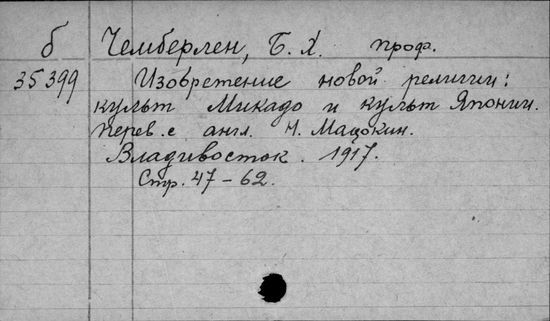 б Чемберлен, Б. Х. проф.
35399 Изобретение новой религии:
культ Микадо и культ Японии.
Перев. с англ. Н. Мацокин.
Владивосток. 1917.
Стр. 47-62.